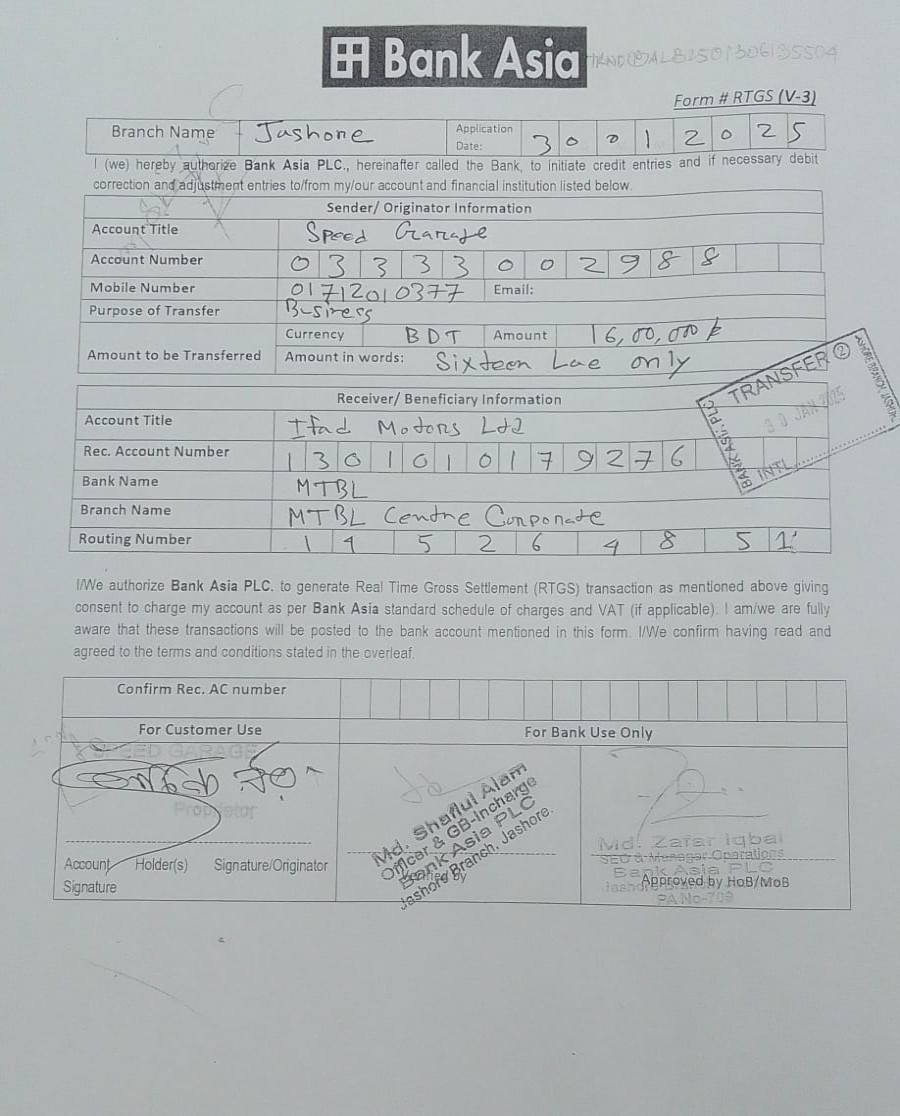 Bank Asia
Form # RTGS (V-3)
Branch Name Jashore Application Date: 30 01 2025
I (we) hereby authorize Bank Asia PLC., hereinafter called the Bank, to initiate credit entries and if necessary debit
correction and adjustment entries to/from my/our account and financial institution listed below.
Sender/ Originator Information
Account Title Speed Garage
Account Number 0 3 3 3 3 0 0 2 9 8 8
Mobile Number 01712010377 Email:
Purpose of Transfer Business
Amount to be Transferred Currency BDT Amount 16,00,000
Amount in words: Sixteen Lac only
TRANSFER 2
30 JAN 2025
BANK ASIA PLC.
INTL
Receiver/ Beneficiary Information
Account Title Ifad Motors Ltd
Rec. Account Number 1 3 0 1 0 1 0 1 7 9 2 7 6
Bank Name MTBL
Branch Name MTBL Centre Corporate
Routing Number 1 4 5 2 6 4 8 5 1
I/We authorize Bank Asia PLC. to generate Real Time Gross Settlement (RTGS) transaction as mentioned above giving
consent to charge my account as per Bank Asia standard schedule of charges and VAT (if applicable). I am/we are fully
aware that these transactions will be posted to the bank account mentioned in this form. I/We confirm having read and
agreed to the terms and conditions stated in the overleaf.
Confirm Rec. AC number
For Customer Use For Bank Use Only
SPEED GARAGE
Proprietor
Account Holder(s) Signature/Originator
Signature
Md. Shaflul Alam
Officer & GB-Incharge
Bank Asia PLC
Jashore Branch, Jashore.
Md. Zafar Iqbal
SEO & Manager Operations
Bank Asia PLC
Approved by HoB/MoB
PA No-709